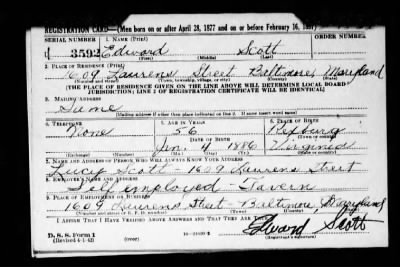 REGISTRATION CARD—(Men born on or after April 28, 1877 and on or before February 16, 1897)
SERIAL NUMBER 1. NAME (Print) ORDER NUMBER
U 3592 Edward Scott
2. PLACE OF RESIDENCE (Print)
1609 Laurens Street Baltimore Maryland
(Number and street) (Town, township, village, or city) (County) (State)
[THE PLACE OF RESIDENCE GIVEN ON THE LINE ABOVE WILL DETERMINE LOCAL BOARD
JURISDICTION; LINE 2 OF REGISTRATION CERTIFICATE WILL BE IDENTICAL]
3. MAILING ADDRESS
Same
[Mailing address if other than place indicated on line 2. If same insert word same]
4. TELEPHONE 5. AGE IN YEARS 6. PLACE OF BIRTH
None 56 Rixburg
DATE OF BIRTH (Town or county)
Jan 4 1886 Virginia
(Exchange) (Number) (Mo.) (Day) (Yr.) (State or country)
7. NAME AND ADDRESS OF PERSON WHO WILL ALWAYS KNOW YOUR ADDRESS
Lucy Scott 1609 Laurens Street
8. EMPLOYER'S NAME AND ADDRESS
Self employed - Tavern
9. PLACE OF EMPLOYMENT OR BUSINESS
1609 Laurens Street - Baltimore, Maryland
(Number and street or R. F. D. number) (Town) (County) (State)
I AFFIRM THAT I HAVE VERIFIED ABOVE ANSWERS AND THAT THEY ARE TRUE.
Edward Scott
D. S. S. Form 1
(Revised 4-1-42) (over)